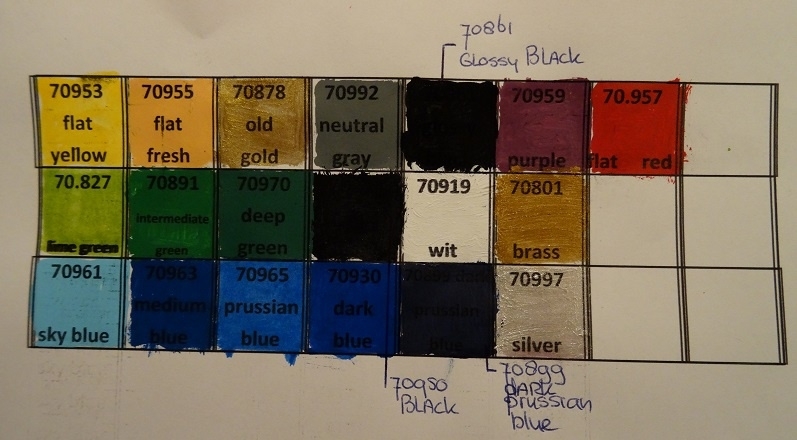 70861
Glossy Black
70953
flat
yellow
70955
flat
fresh
70878
old
gold
70992
neutral
gray
70959
purple
70.957
flat red
70.827
lime green
70891
intermediate
green
70970
deep
green
70919
wit
70801
brass
70961
sky blue
70963
medium
blue
70965
prussian
blue
70930
dark
blue
70899 dark
prussian
blue
70997
silver
70950
Black
70899
DARK
prussian
blue